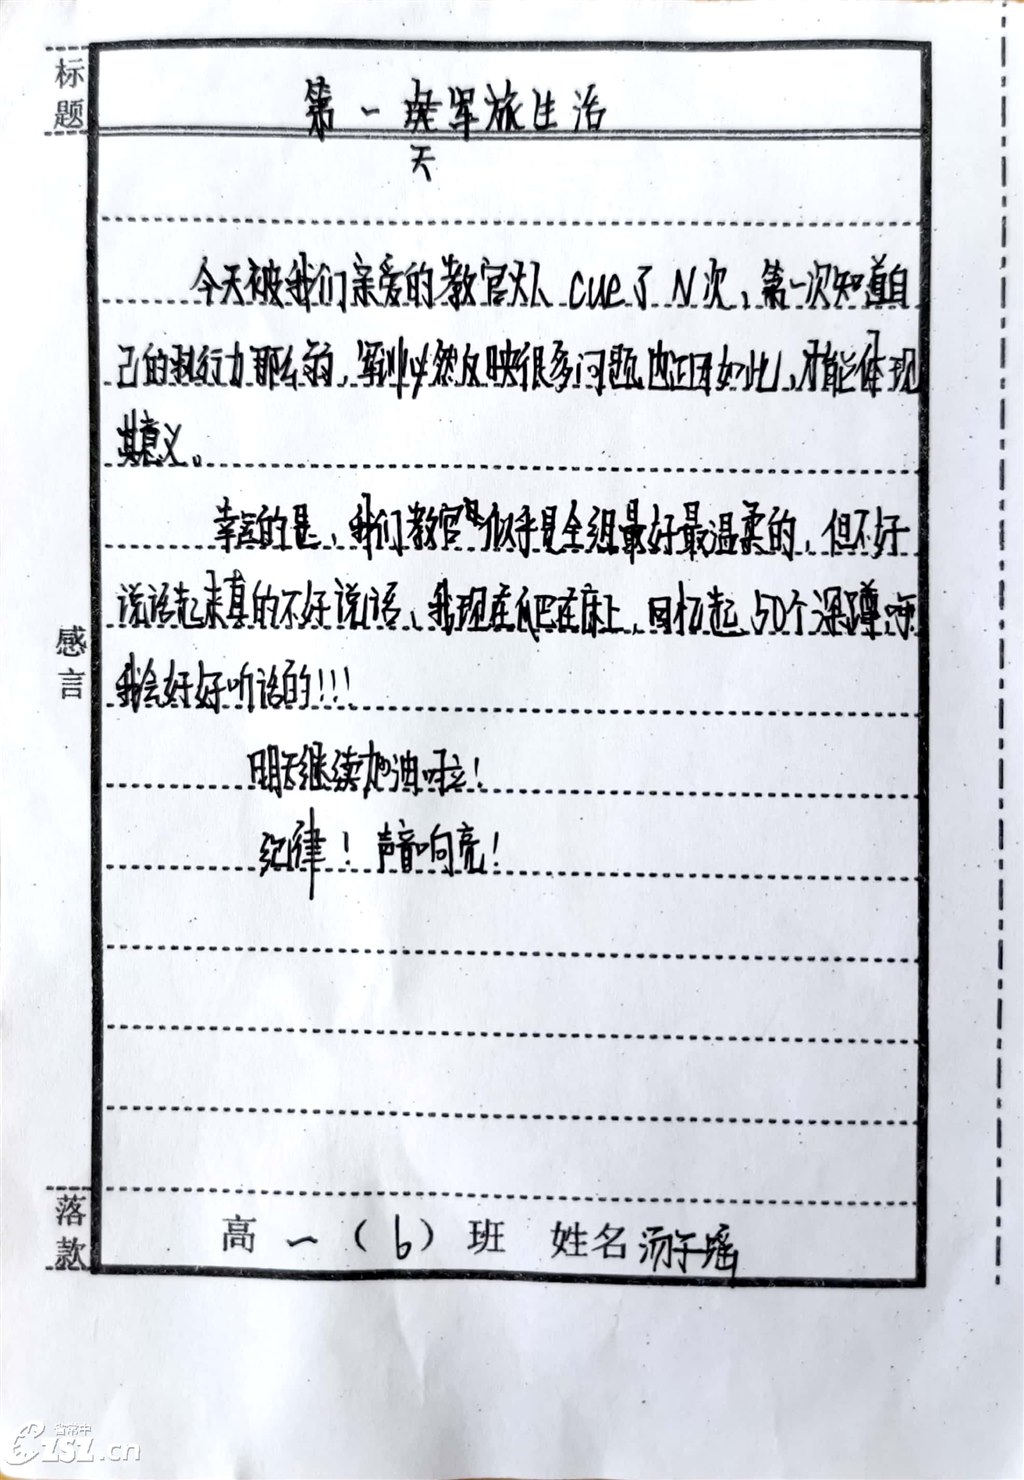 标题
第一天军旅生活
今天被我们亲爱的教官大人cue了N次，第一次知道自
己的执行力那么弱，军训必然反映很多问题，也正因如此，才能体现
其意义。
幸运的是，我们教官似乎是全组最好最温柔的，但不好
说话起来真的不好说话，我现在趴在床上，回忆起50个深蹲，
感言
我会好好听话的!!!
明天继续加油啦！
纪律！声音响亮！
落款
高一（6）班 姓名汤子瑶
省常中
CZSZ.cn